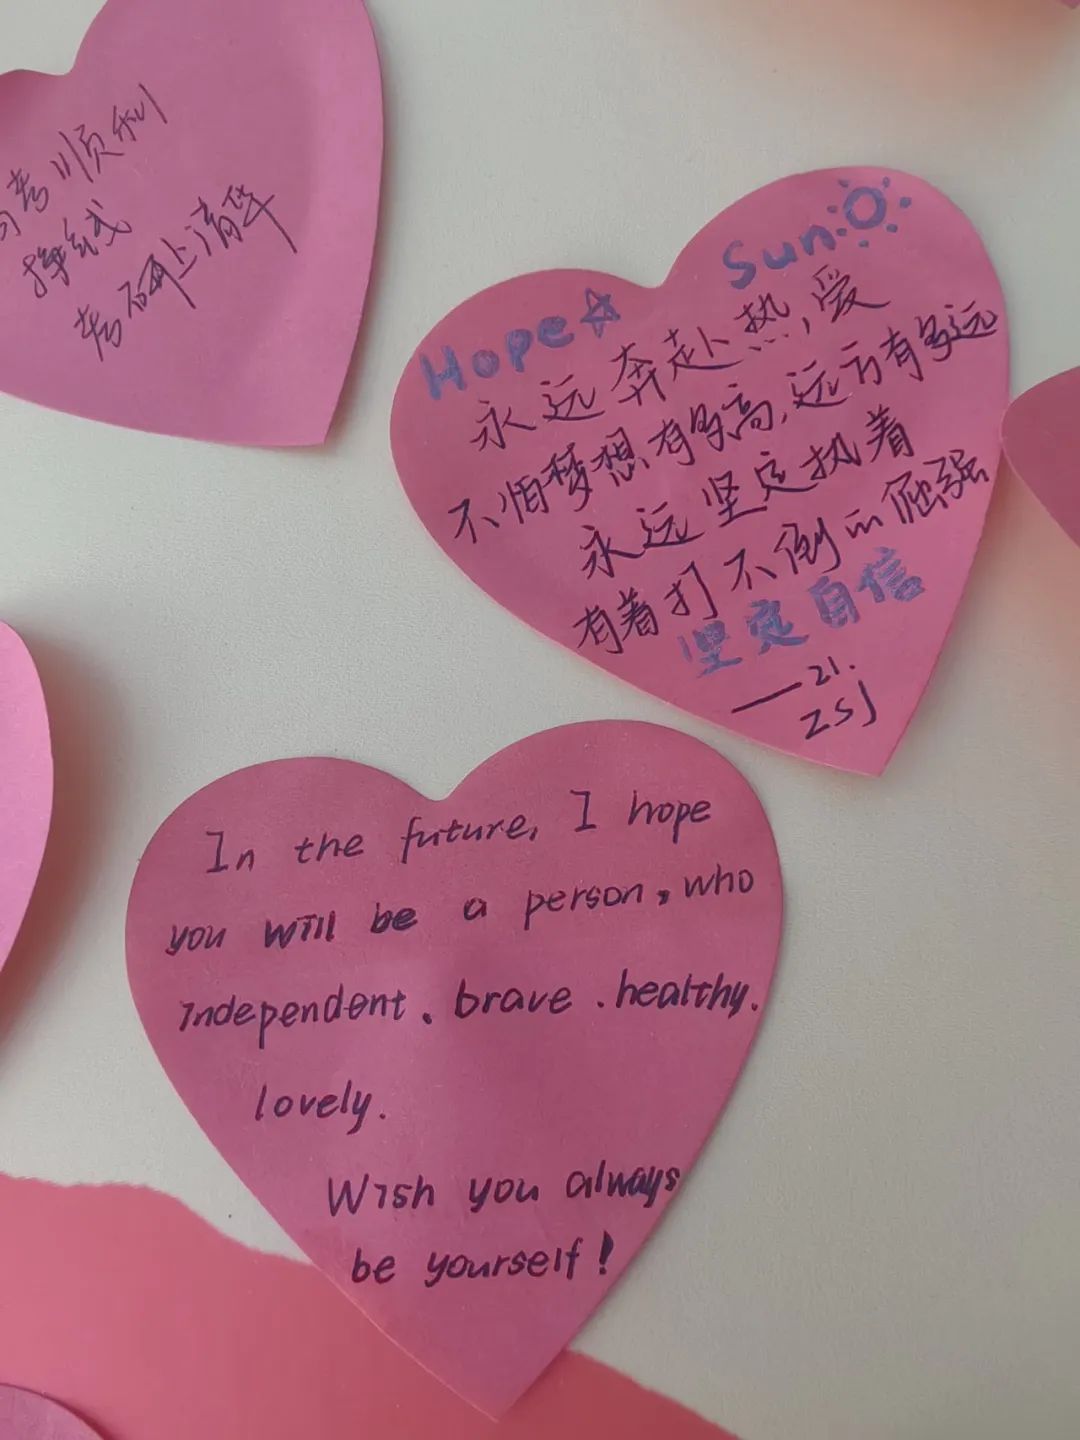 考顺利
挣钱
考研上清华
Hope Sun
永远奔赴热爱
不怕梦想有多高,远方有多远
永远坚定执着
有着打不倒的倔强
坚定自信
——21.
ZSJ
In the future, I hope
you will be a person, who
independent. brave. healthy.
lovely.
Wish you always
be yourself!